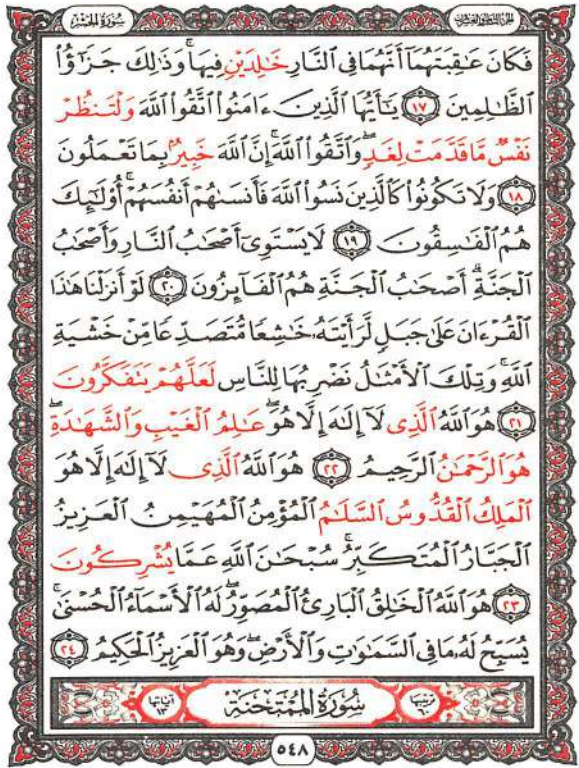 سُورَةُ الحَشْرِ
الجزء الثامن والعشرون
فَكَانَ عَٰقِبَتَهُمَآ أَنَّهُمَا فِى ٱلنَّارِ خَٰلِدَيْنِ فِيهَا ۚ وَذَٰلِكَ جَزَٰٓؤُا۟
ٱلظَّٰلِمِينَ ١٧ يَٰٓأَيُّهَا ٱلَّذِينَ ءَامَنُوا۟ ٱتَّقُوا۟ ٱللَّهَ وَلْتَنظُرْ
نَفْسٌ مَّا قَدَّمَتْ لِغَدٍ ۖ وَٱتَّقُوا۟ ٱللَّهَ ۚ إِنَّ ٱللَّهَ خَبِيرٌۢ بِمَا تَعْمَلُونَ
١٨ وَلَا تَكُونُوا۟ كَٱلَّذِينَ نَسُوا۟ ٱللَّهَ فَأَنسَىٰهُمْ أَنفُسَهُمْ ۚ أُو۟لَٰٓئِكَ
هُمُ ٱلْفَٰسِقُونَ ١٩ لَا يَسْتَوِىٓ أَصْحَٰبُ ٱلنَّارِ وَأَصْحَٰبُ
ٱلْجَنَّةِ ۚ أَصْحَٰبُ ٱلْجَنَّةِ هُمُ ٱلْفَآئِزُونَ ٢٠ لَوْ أَنزَلْنَا هَٰذَا
ٱلْقُرْءَانَ عَلَىٰ جَبَلٍ لَّرَأَيْتَهُۥ خَٰشِعًا مُّتَصَدِّعًا مِّنْ خَشْيَةِ
ٱللَّهِ ۚ وَتِلْكَ ٱلْأَمْثَٰلُ نَضْرِبُهَا لِلنَّاسِ لَعَلَّهُمْ يَتَفَكَّرُونَ
٢١ هُوَ ٱللَّهُ ٱلَّذِى لَآ إِلَٰهَ إِلَّا هُوَ ۖ عَٰلِمُ ٱلْغَيْبِ وَٱلشَّهَٰدَةِ ۖ
هُوَ ٱلرَّحْمَٰنُ ٱلرَّحِيمُ ٢٢ هُوَ ٱللَّهُ ٱلَّذِى لَآ إِلَٰهَ إِلَّا هُوَ
ٱلْمَلِكُ ٱلْقُدُّوسُ ٱلسَّلَٰمُ ٱلْمُؤْمِنُ ٱلْمُهَيْمِنُ ٱلْعَزِيزُ
ٱلْجَبَّارُ ٱلْمُتَكَبِّرُ ۚ سُبْحَٰنَ ٱللَّهِ عَمَّا يُشْرِكُونَ
٢٣ هُوَ ٱللَّهُ ٱلْخَٰلِقُ ٱلْبَارِئُ ٱلْمُصَوِّرُ ۖ لَهُ ٱلْأَسْمَآءُ ٱلْحُسْنَىٰ ۚ
يُسَبِّحُ لَهُۥ مَا فِى ٱلسَّمَٰوَٰتِ وَٱلْأَرْضِ ۖ وَهُوَ ٱلْعَزِيزُ ٱلْحَكِيمُ ٢٤
ترتيبها ٦٠ سُورَةُ المُمْتَحنَة آياتها ١٣
٥٤٨